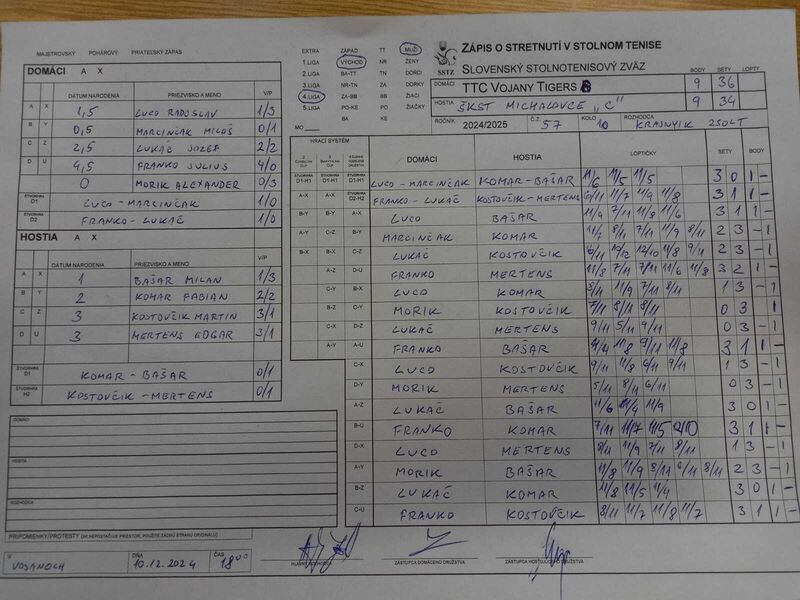 MAJSTROVSKÝ POHÁROVÝ PRIATEĽSKÝ ZÁPAS
EXTRA ZÁPAD TT MUŽI
1.LIGA VÝCHOD NR ŽENY
2.LIGA BA-TT TN DORCI
3.LIGA NR-TN ZA DORKY
4.LIGA ZA-BB BB ŽIACI
5.LIGA PO-KE PO ŽIAČKY
BA KE
MO
SSTZ
ZÁPIS O STRETNUTÍ V STOLNOM TENISE
SLOVENSKÝ STOLNOTENISOVÝ ZVÄZ
BODY SETY LOPTY
DOMÁCI TTC VOJANY TIGERS B 9 36
HOSTIA ŠKST MICHALOVCE "C" 9 34
ROČNÍK 2024/2025 Č.Z. 57 KOLO 10 ROZHODCA KRAJNYIK ZSOLT
DOMÁCI A X
DÁTUM NARODENIA PRIEZVISKO A MENO V/P
A X 1,5 LUCO RADOSLAV 1/3
B Y 0,5 MARCINČAK MILOŠ 0/1
C Z 2,5 LUKÁČ JOZEF 2/2
D U 4,5 FRANKO JÚLIUS 4/0
0 MORIK ALEXANDER 0/3
ŠTVORHRA D1 LUCO - MARCINČAK 1/0
ŠTVORHRA D2 FRANKO - LUKÁČ 1/0
HOSTIA A X
DÁTUM NARODENIA PRIEZVISKO A MENO V/P
A X 1 BAŠAR MILAN 1/3
B Y 2 KOMAR FABIAN 2/2
C Z 3 KOSTOVČIK MARTIN 3/1
D U 3 MERTENS EDGAR 3/1
ŠTVORHRA D1 KOMAR - BAŠAR 0/1
ŠTVORHRA H2 KOSTOVČIK - MERTENS 0/1
HRACÍ SYSTÉM DOMÁCI HOSTIA LOPTIČKY SETY BODY
D1-H1 D1-H1 D1-H1 LUCO - MARCINČAK KOMAR - BAŠAR 11/6 11/5 11/5 3 0 1 -
A-X A-X D2-H2 FRANKO - LUKÁČ KOSTOVČIK - MERTENS 11/7 11/9 11/8 3 1 1 -
B-Y B-Y A-X LUCO BAŠAR 11/9 7/11 11/8 11/6 3 1 1 -
A-Y C-Z B-Y MARCINČAK KOMAR 8/11 7/11 11/9 8/11 2 3 - 1
B-X B-X C-Z LUKÁČ KOSTOVČIK 10/12 12/10 11/8 9/11 2 3 - 1
A-Z D-U FRANKO MERTENS 11/8 7/11 7/11 11/6 11/8 3 2 1 -
C-Y B-X LUCO KOMAR 11/9 7/11 8/11 1 3 - 1
B-Z C-Y MORIK KOSTOVČIK 7/11 8/11 8/11 0 3 1
C-X D-Z LUKÁČ MERTENS 9/11 5/11 9/11 0 3 - 1
A-Y A-U FRANKO BAŠAR 11/8 9/11 11/8 3 1 1 -
C-X LUCO KOSTOVČIK 9/11 11/8 6/11 9/11 1 3 - 1
D-Y MORIK MERTENS 5/11 8/11 6/11 0 3 - 1
A-Z LUKÁČ BAŠAR 11/6 11/4 11/9 3 0 1 -
B-U FRANKO KOMAR 7/11 11/7 11/5 12/10 3 1 1 -
D-X LUCO MERTENS 8/11 11/9 7/11 8/11 1 3 - 1
A-Y MORIK BAŠAR 11/8 11/9 8/11 6/11 8/11 2 3 - 1
B-Z LUKÁČ KOMAR 11/8 11/5 11/4 3 0 1 -
C-U FRANKO KOSTOVČIK 8/11 11/7 11/8 11/7 3 1 1 -
DOMÁCI
HOSTIA
ROZHODCA
PRIPOMIENKY/PROTESTY (PRI NEPOSTAČUJE PRIESTOR, POUŽITE ZADNÚ STRANU ORIGINÁLU)
V VOJANOCH DŇA 10.12.2024 ČAS 18:00
HLAVNÝ ROZHODCA ZÁSTUPCA DOMÁCEHO DRUŽSTVA ZÁSTUPCA HOSŤUJÚCEHO DRUŽSTVA